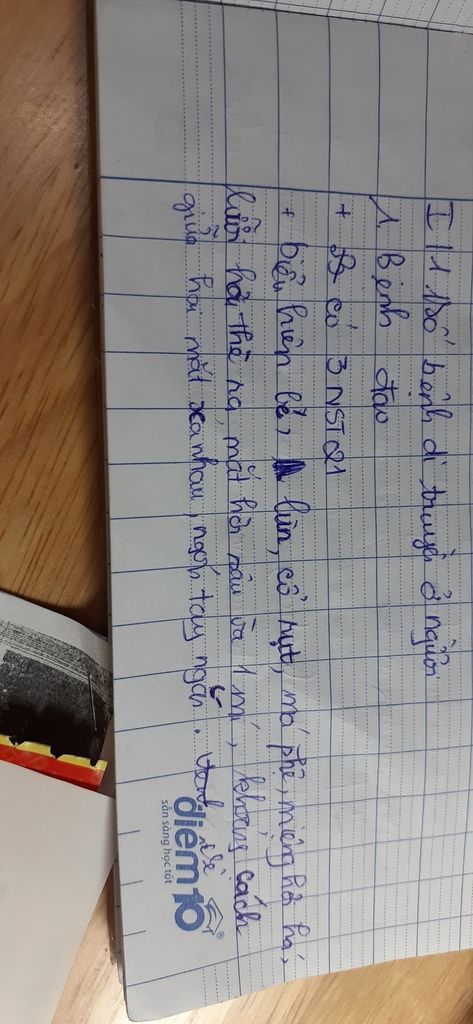 I / 1 số bệnh di truyền ở người
1 Bệnh đao
+ có 3 NST 21
+ biểu hiện bé, lùn, cổ rụt, má phệ, miệng hơi há,
lưỡi hơi thè ra, mắt hơi sâu và 1 mí, khoảng cách
giữa hai mắt xa nhau, ngón tay ngắn.
điểm 10
®
sẵn sàng học tốt